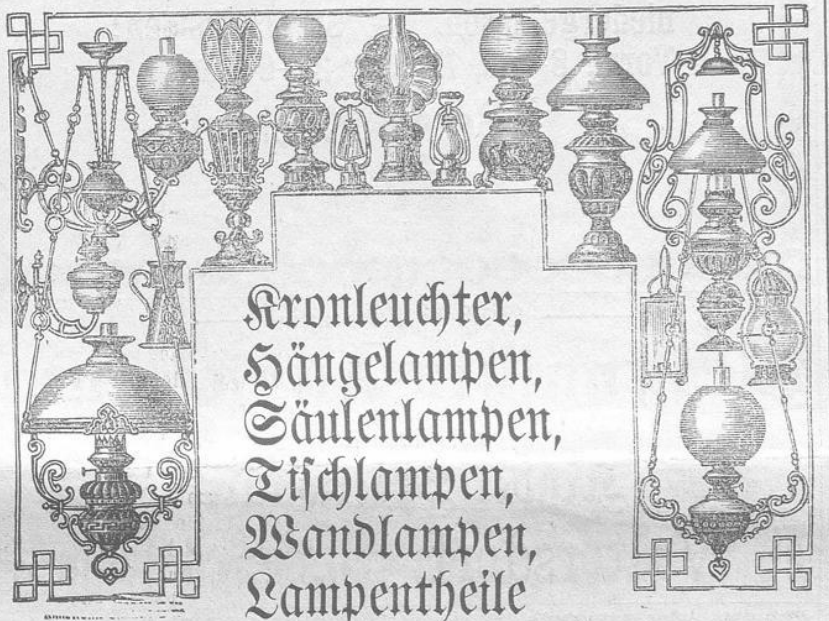 Kronleuchter,
Hängelampen,
Säulenlampen,
Tiſchlampen,
Wandlampen,
Lampentheile